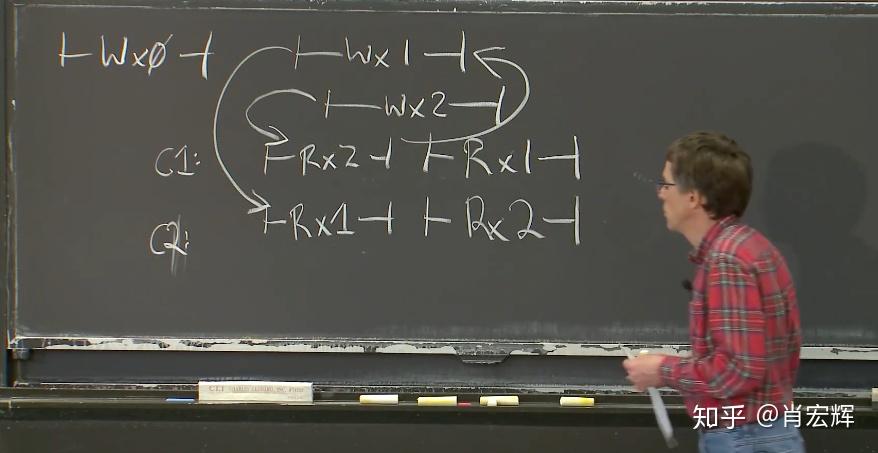 Wx0 Wx1
Wx2
C1: Rx2 Rx1
C2: Rx1 Rx2
知乎 @肖宏辉